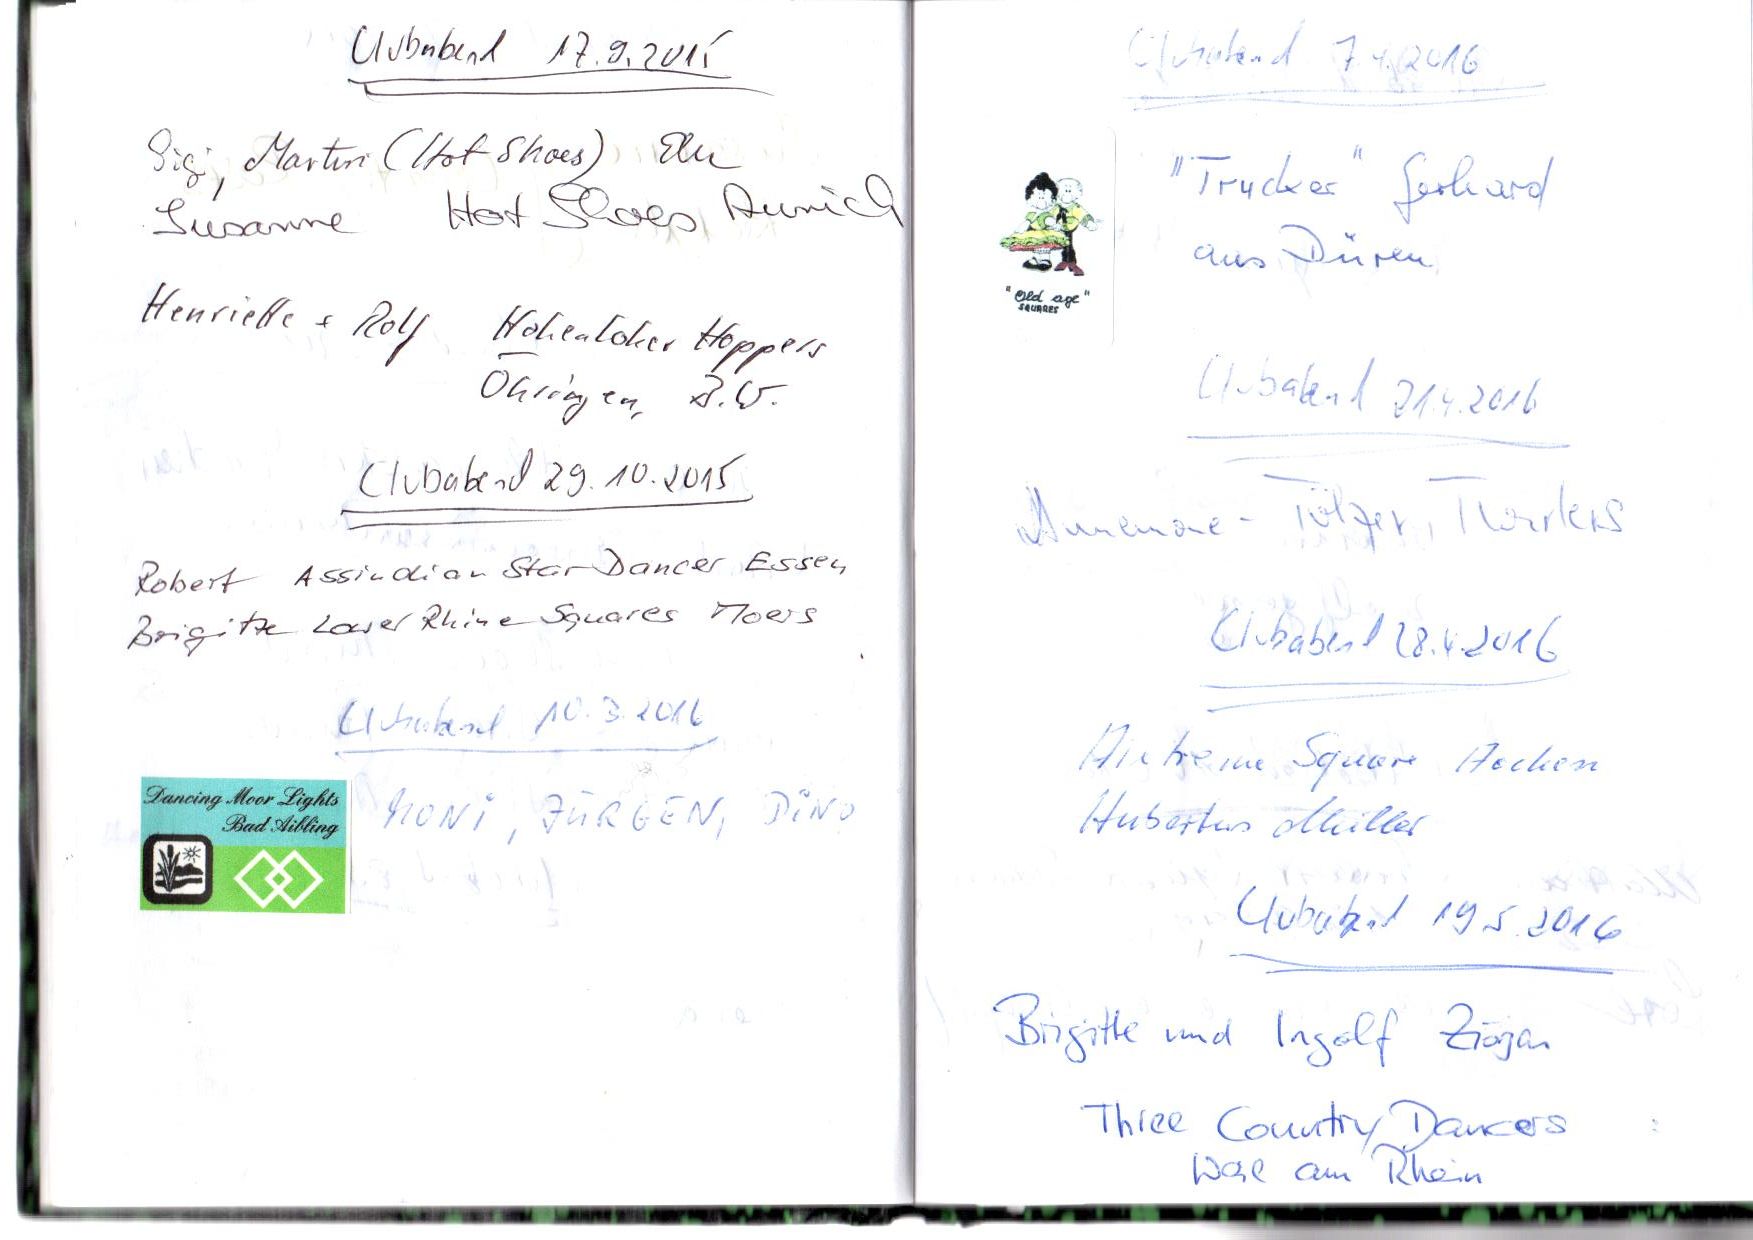 Clubabend 17.9.2015
Sigi, Martin (Hot Shoes)
Susanne Hot Shoes Aurich
Henriette + Rolf Hohenloher Hoppers
Öhringen, B.W.
Clubabend 29.10.2015
Robert Assindian Star Dancer Essen
Brigitte Lower Rhine Squares Moers
Clubabend 10.3.2016
Dancing Moor Lights
Bad Aibling
MONI, JÜRGEN, DINO
Clubabend 7.4.2016
"Trucker" Gerhard
aus Düren
"Old age"
SQUARES
Clubabend 21.4.2016
Annemone - Tölzer Twirlers
Clubabend 28.4.2016
Square Aachen
Hubertus Müller
Clubabend 19.5.2016
Brigitte und Ingolf
Three Country Dancers
Weil am Rhein